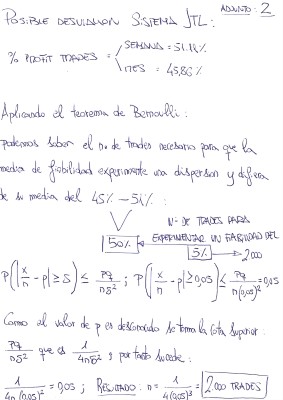 ADJUNTO: 2
POSIBLE DESVIACION SISTEMA JTL:
% PROFIT TRADES = SEMANA = 51.18%
MES = 45,86%
Aplicando el teorema de Bernoulli:
podemos saber el no. de trades necesario para que la
media de fiabilidad experimente una dispersion y difiera
de su media del 45% - 51%:
Nº DE TRADES PARA
50% EXPERIMENTAR UN FIABILIDAD DEL
5% 2000
P(|x/n - p| ≥ δ) ≤ pq/nδ² ; P(|x/n - p| ≥ 0,05) ≤ pq/n(0,05)² = 0,05
Como el valor de p es desconocido se toma la cota superior:
pq/nδ² que es 1/4nδ² y por tanto sucede:
1/4n(0,05)² = 0,05 ; RESULTADO: n = 1/4(0,05)³ = 2000 TRADES